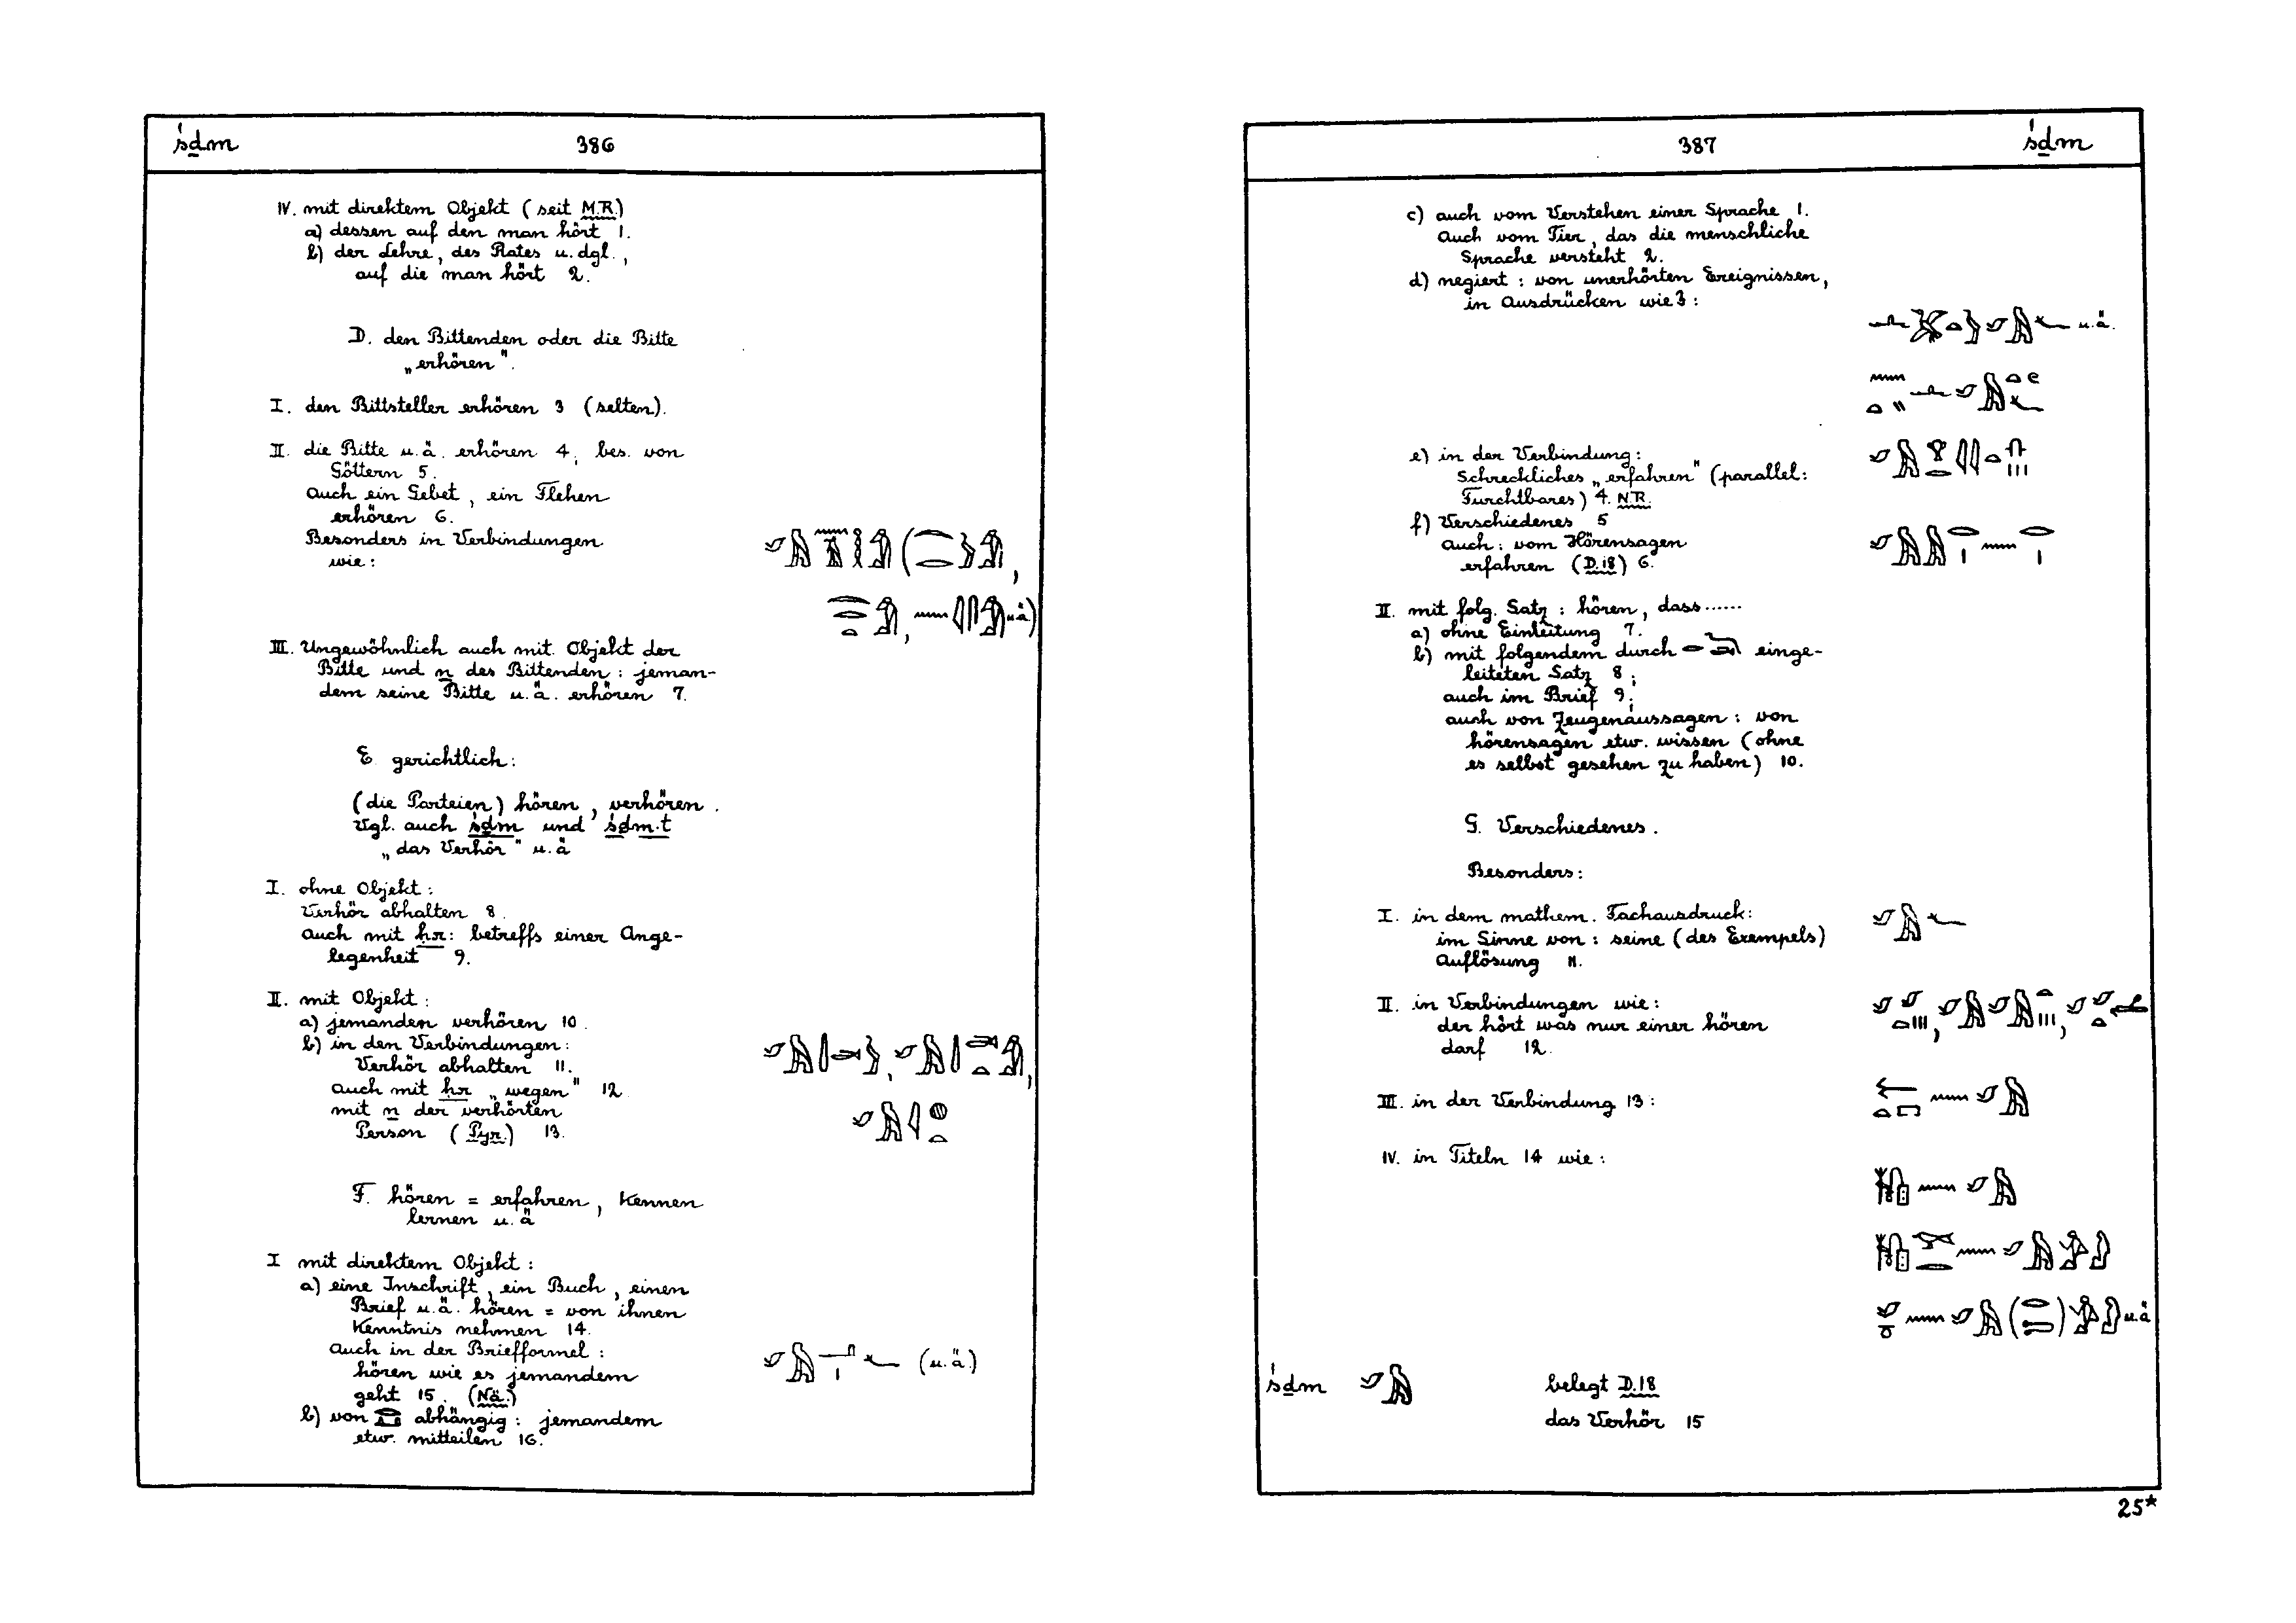 śḏm 386
IV. mit direktem Objekt (seit M.R.)
a) dessen auf den man hört 1.
b) der Lehre, des Rates u. dgl.,
auf die man hört 2.
D. den Bittenden oder die Bitte
„erhören".
I. den Bittsteller erhören 3 (selten).
II. die Bitte u.ä. erhören 4; bes. von
Göttern 5.
Auch ein Gebet, ein Flehen
erhören 6.
Besonders in Verbindungen
wie:
u.ä)
III. Ungewöhnlich auch mit Objekt der
Bitte und n des Bittenden: jeman-
dem seine Bitte u.ä. erhören 7.
E gerichtlich:
(die Parteien) hören, verhören.
Vgl. auch śḏm und śḏm.t
„das Verhör" u.ä
I. ohne Objekt:
Verhör abhalten 8.
Auch mit ḥr: betreffs einer Ange-
legenheit 9.
II. mit Objekt:
a) jemanden verhören 10.
b) in den Verbindungen:
Verhör abhalten 11.
Auch mit ḥr „wegen" 12
mit n der verhörten
Person (Pyr.) 13.
F. hören = erfahren, kennen
lernen u.ä
I mit direktem Objekt:
a) eine Inschrift, ein Buch, einen
Brief u.ä. hören = von ihnen
Kenntnis nehmen 14.
Auch in der Briefformel:
(u.ä.)
hören wie es jemandem
geht 15. (Nä.)
b) von abhängig: jemandem
etw. mitteilen 16.
387 śḏm
c) auch vom Verstehen einer Sprache 1.
Auch vom Tier, das die menschliche
Sprache versteht 2.
d) negiert: von unerhörten Ereignissen,
in Ausdrücken wie 3:
u.ä.
e) in der Verbindung:
Schreckliches „erfahren" (parallel:
Furchtbares) 4. N.R.
f) Verschiedenes 5
Auch: vom Hörensagen
erfahren (D.18) 6.
II. mit folg. Satz: hören, dass ......
a) ohne Einleitung 7.
b) mit folgendem durch einge-
leiteten Satz 8;
auch im Brief 9;
auch von Zeugenaussagen: von
hörensagen etw. wissen (ohne
es selbst gesehen zu haben) 10.
G. Verschiedenes.
Besonders:
I. in dem mathem. Fachausdruck:
im Sinne von: seine (des Exempels)
Auflösung 11.
II. in Verbindungen wie:
der hört was nur einer hören
darf 12.
III. in der Verbindung 13:
IV. in Titeln 14 wie:
u.ä
śḏm belegt D.18
das Verhör 15
25*